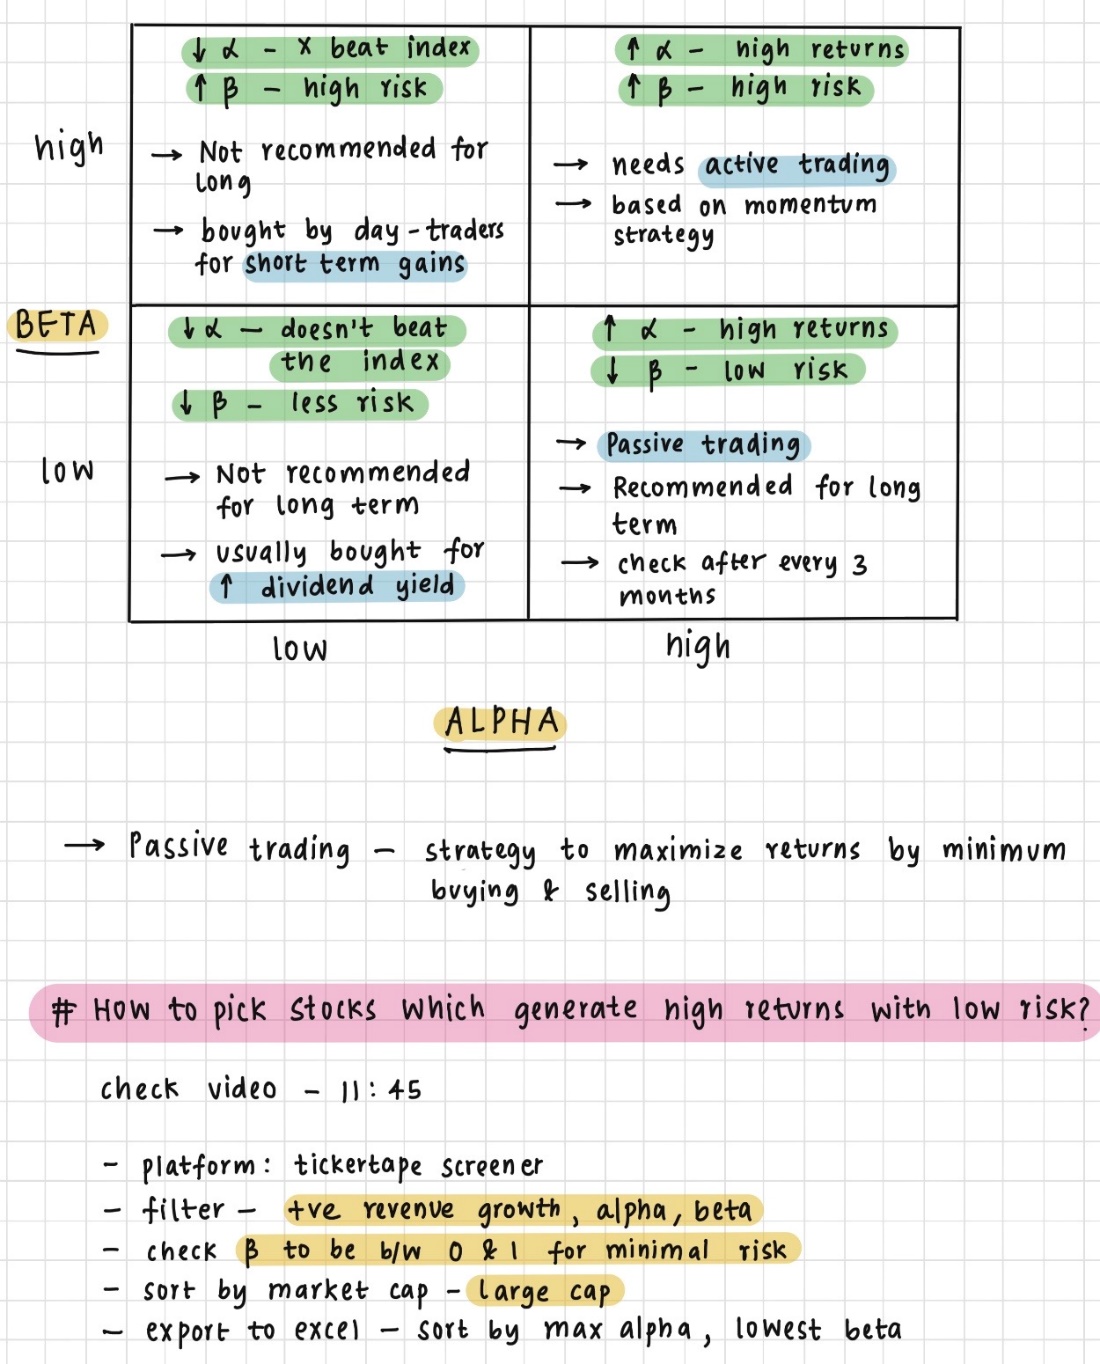 ↓ α - x beat index
↑ β - high risk
→ Not recommended for
long
→ bought by day-traders
for short term gains
↑ α - high returns
↑ β - high risk
→ needs active trading
→ based on momentum
strategy
high
BETA
↓ α - doesn't beat
the index
↓ β - less risk
→ Not recommended
for long term
→ usually bought for
↑ dividend yield
↑ α - high returns
↓ β - low risk
→ Passive trading
→ Recommended for long
term
→ check after every 3
months
low
low
high
ALPHA
→ Passive trading - strategy to maximize returns by minimum
buying & selling
# How to pick stocks which generate high returns with low risk?
check video - 11:45
- platform: tickertape screener
- filter - +ve revenue growth, alpha, beta
- check β to be b/w 0 & 1 for minimal risk
- sort by market cap - large cap
- export to excel - sort by max alpha, lowest beta